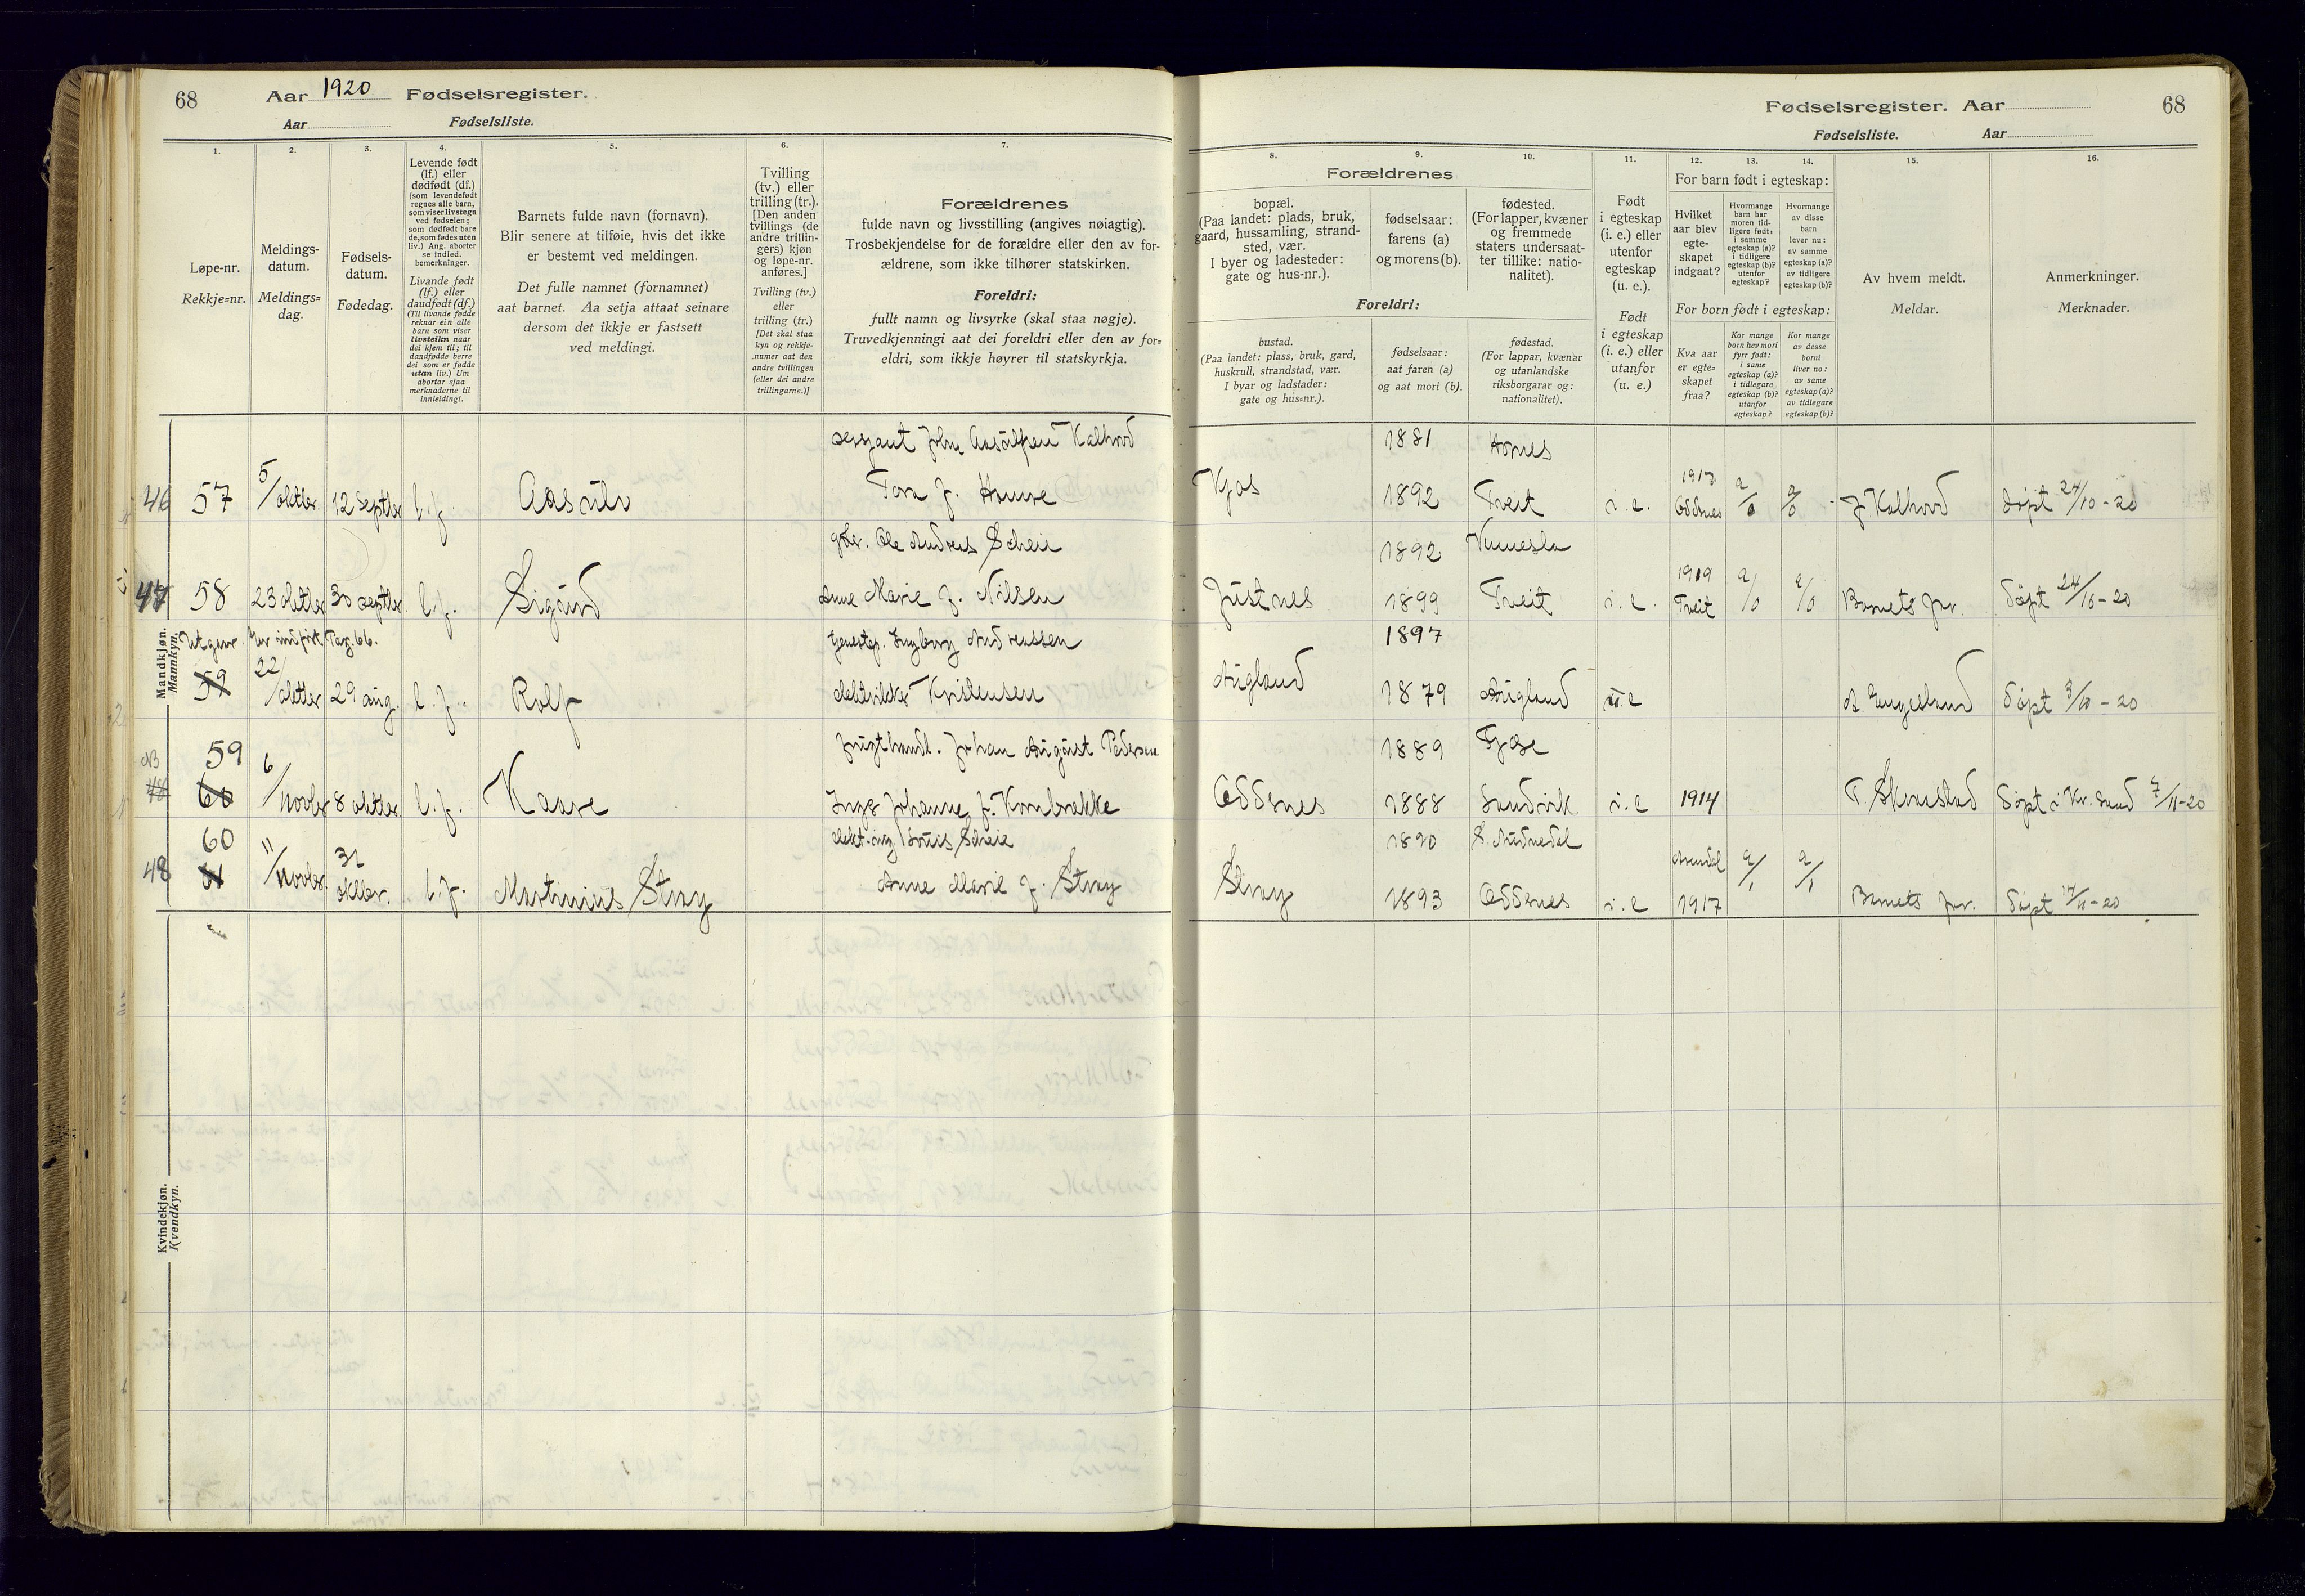 68
Aar 1920 Fødselsregister.
Aar
Fødselsliste.
1.
2.
3.
4.
5.
6.
7.
Løpe-nr.
Rekkje=nr.
Meldings-
datum.
Meldings=
dag.
Fødsels-
datum.
Fødedag.
Levende født
(lf.) eller
dødfødt (df.)
(som levendefødt
regnes alle barn,
som viser livstegn
ved fødselen;
som dødfødt bare
de, som fødes uten
liv.) Ang. aborter
se indled.
bemerkninger.
Livande født
(lf.) eller
daudfødt (df.)
(Til livande fødde
reknar ein alle
barn som viser
livsteikn naar
dei kjem til; til
daudfødde berre
dei som er fødde
utan liv.) Um
abortar sjaa
merknaderne til
innleidingi.
Barnets fulde navn (fornavn).
Blir senere at tilføie, hvis det ikke
er bestemt ved meldingen.
Det fulle namnet (fornamnet)
aat barnet. Aa setja attaat seinare
dersom det ikkje er fastsett
ved meldingi.
Tvilling
(tv.) eller
trilling (tr.).
[Den anden
tvillings (de
andre trillin-
gers) kjøn
og løpe-nr.
anføres.]
Tvilling (tv.)
eller
trilling (tr.)
[Det skal staa
kyn og rekkje-
numer aat den
andre tvillingen
(eller dei andre
trillingarne.)]
Forældrenes
fulde navn og livsstilling (angives nøiagtig).
Trosbekjendelse for de forældre eller den av for-
ældrene, som ikke tilhører statskirken.
Foreldri:
fullt namn og livsyrke (skal staa nøgje).
Truvedkjenningi aat dei foreldri eller den av for=
eldri, som ikkje høyrer til statskyrkja.
Fødselsregister. Aar
68
Fødselsliste.
Aar
8.
9.
10.
11.
12.
13.
14.
15.
16.
Forældrenes
bopæl.
(Paa landet: plads, bruk,
gaard, hussamling, strand-
sted, vær.
I byer og ladesteder:
gate og hus-nr.).
fødselsaar:
farens (a)
og morens (b).
fødested.
(For lapper, kvæner
og fremmede
staters undersaat-
ter tillike: natio-
nalitet).
Foreldri:
bustad.
(Paa landet: plass, bruk, gard,
huskrull, strandstad, vær.
I byar og ladstader:
gate og hus=nr.).
fødselsaar:
aat faren (a)
og aat mori (b).
fødestad.
(For lappar, kvænar
og utanlandske
riksborgarar og:
nationalitet).
Født
i egteskap
(i. e.) eller
utenfor
egteskap
(u. e.).
Født
i egteskap
(i. e.) eller
utanfor
(u. e.)
For barn født i egteskap:
Hvilket
aar blev
egte-
skapet
indgaat?
Hvormange
barn har
moren tid-
ligere født:
i samme
egteskap (a)?
i tidligere
egteskap (b)?
utenfor
egteskap?
Hvormange
av disse
barn
lever nu:
av samme
egteskap (a)?
av tidligere
egteskap (b)?
For born født i egteskap:
Kva aar
er egte=
skapet
fraa?
Kor mange
born hev mori
fyrr født:
i same
egteskap (a)?
i tidlegare
egteskap (b)?
utanfor
egteskap?
Kor mange
av desse
borni
liver no:
av same
egteskap (a)?
av tidlegare
egteskap (b)?
Av hvem meldt.
Meldar.
Anmerkninger.
Merknader.
Mandkjøn.
Mannkyn.
sersjant John Aasulfsen Kalhovd 1881
46 57 5/oktber. 12 Septber l.f. Aasulv Tora f. Kjos 1892 Tveit i.e. 1917 Oddnes a/0 a/0 J. Kalhovd døpt 24/10-20
Ole Andreas Scheie 1892 Vennesla
47 58 23 oktber 30 septber. l.f. Sigurd Anne Marie f. Nilsen Justnes 1899 Tveit i.e. 1919 Tveit a/0 a/0 Barnets far. døpt 24/10-20
Utgaar. Er indført Pag. 66. Ingeborg Andreassen 1897
59 22/oktber 29 aug. l.f. Rolf Kristensen Augland 1879 Augland u.e A. Engesland døpt 3/10-20
59 Johan August Pedersen 1889
60 6/novbr 8 oktber. l.f. Kaare Inga Johanne f. Kornbrekke Oddernes 1888 Sandvik i.e 1914 T. Skovstad døpt i Kr.sand 7/11-20
60 elekt.ing. Louis Scheie 1890 S. Audnedal
48 61 11/novbr. 31 oktber. l.f. Martinius Stray Anne Marie f. Stray Stray 1893 Oddernes i.e Arendal 1917 a/1 a/1 Barnets far. døpt 14/11-20
Kvindekjøn.
Kvendkyn.